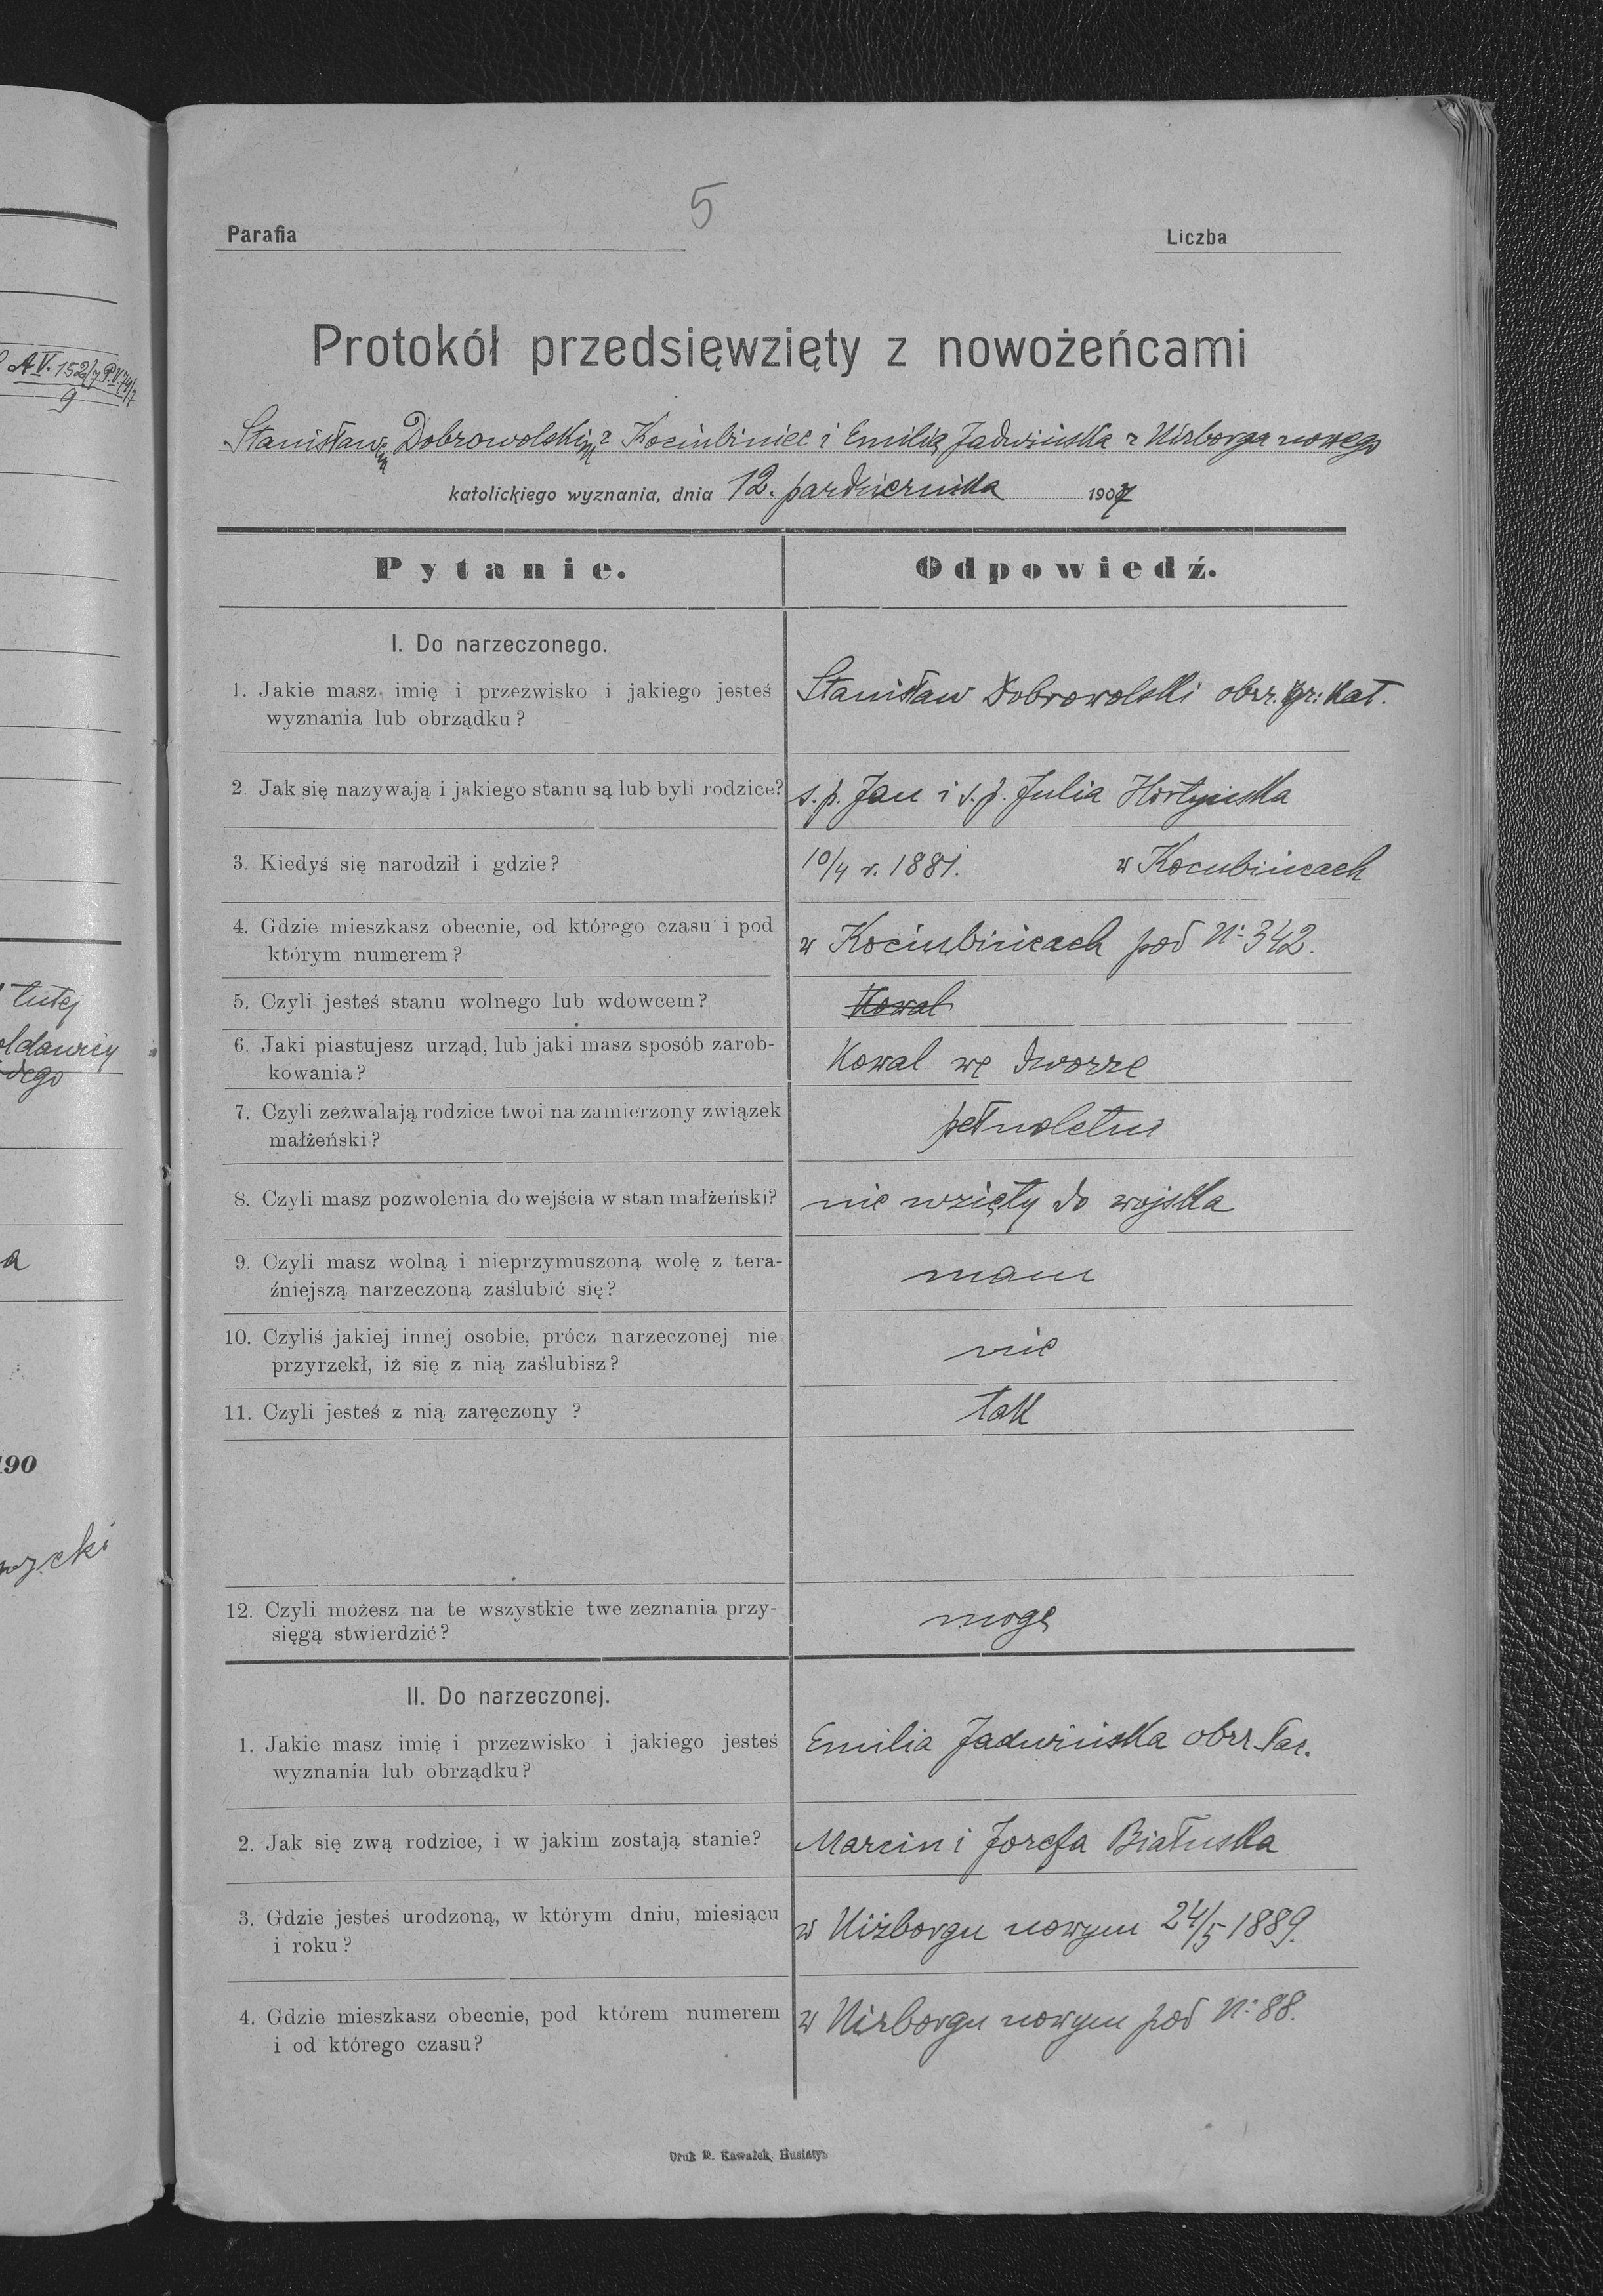 AV. 152/7 P.V 74/7
9
tutej
dego
a
190
5
Parafia
Liczba
Protokół przedsięwzięty z nowożeńcami
Stanisławem Dobrowolskim z Kociubiniec i Emilią Jadwińska z Niżborga nowego
katolickiego wyznania, dnia 12. październiká 1907
Pytanie.
Odpowiedź.
I. Do narzeczonego.
1. Jakie masz imię i przezwisko i jakiego jesteś
wyznania lub obrządku?
Stanisław Dobrowolski obrz. gr: kat.
2. Jak się nazywają i jakiego stanu są lub byli rodzice?
s. p. Jan i s. p. Julia Hortyńska
3. Kiedyś się narodził i gdzie?
10/4 r. 1881. w Kocubińcach
4. Gdzie mieszkasz obecnie, od którego czasu i pod
którym numerem?
w Kociubińcach pod N: 342.
5. Czyli jesteś stanu wolnego lub wdowcem?
Kowal
6. Jaki piastujesz urząd, lub jaki masz sposób zarob-
kowania?
Kowal we dworze
7. Czyli zeżwalają rodzice twoi na zamierzony związek
małżeński?
pełnoletni
8. Czyli masz pozwolenia do wejścia w stan małżeński?
nie wzięty do wojska
9. Czyli masz wolną i nieprzymuszoną wolę z tera-
źniejszą narzeczoną zaślubić się?
mam
10. Czyliś jakiej innej osobie, prócz narzeczonej nie
przyrzekł, iż się z nią zaślubisz?
nie
11. Czyli jesteś z nią zaręczony ?
tak
12. Czyli możesz na te wszystkie twe zeznania przy-
sięgą stwierdzić?
mogę
II. Do narzeczonej.
1. Jakie masz imię i przezwisko i jakiego jesteś
wyznania lub obrządku?
Emilia Jadwińska obrz. łac.
2. Jak się zwą rodzice, i w jakim zostają stanie?
Marcin i Józefa Białuska
3. Gdzie jesteś urodzoną, w którym dniu, miesiącu
i roku?
w Niżborgu nowym 24/5 1889.
4. Gdzie mieszkasz obecnie, pod którem numerem
i od którego czasu?
w Niżborgu nowym pod N: 88.
Druk F. Kawałek, Husiatyn